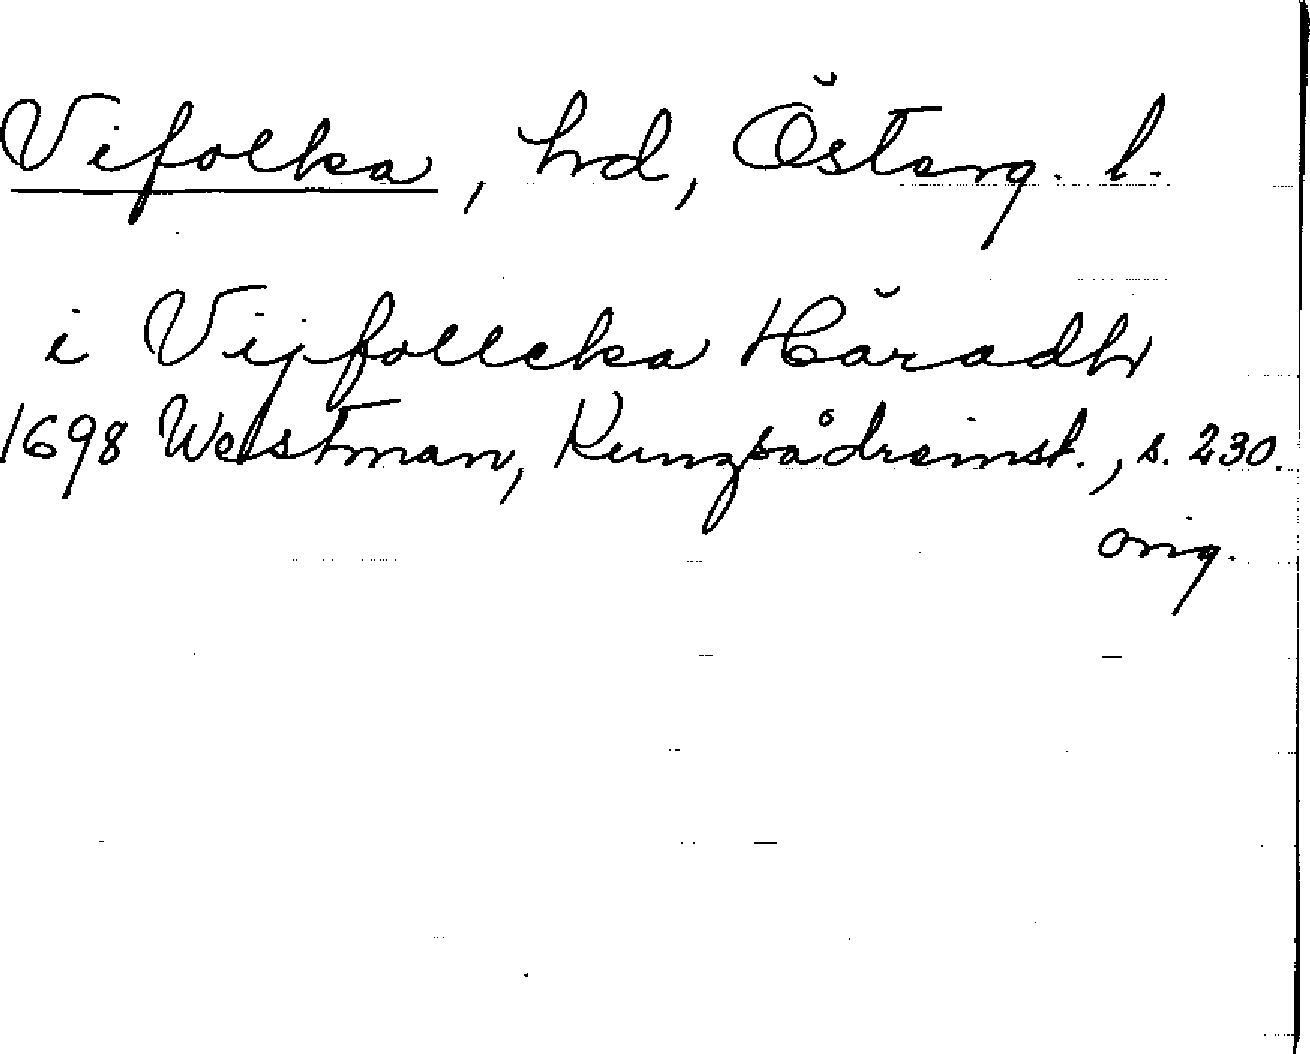 Vifolka, hrd, Österg. l.
i Vijfollcka Häradh
1698 Westman, Kungsådreinst., s. 230.
orig.